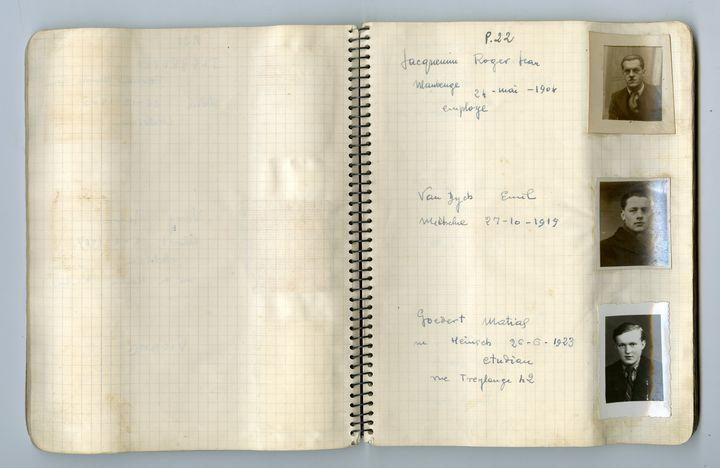 P.22
Jacquemin Roger Jean
Maubeuge 24-mai-1904
employe
Van Dyck Emil
27-10-1919
Goedert Matias
Heinsch 26-6-1923
etudian
rue Treylange 42